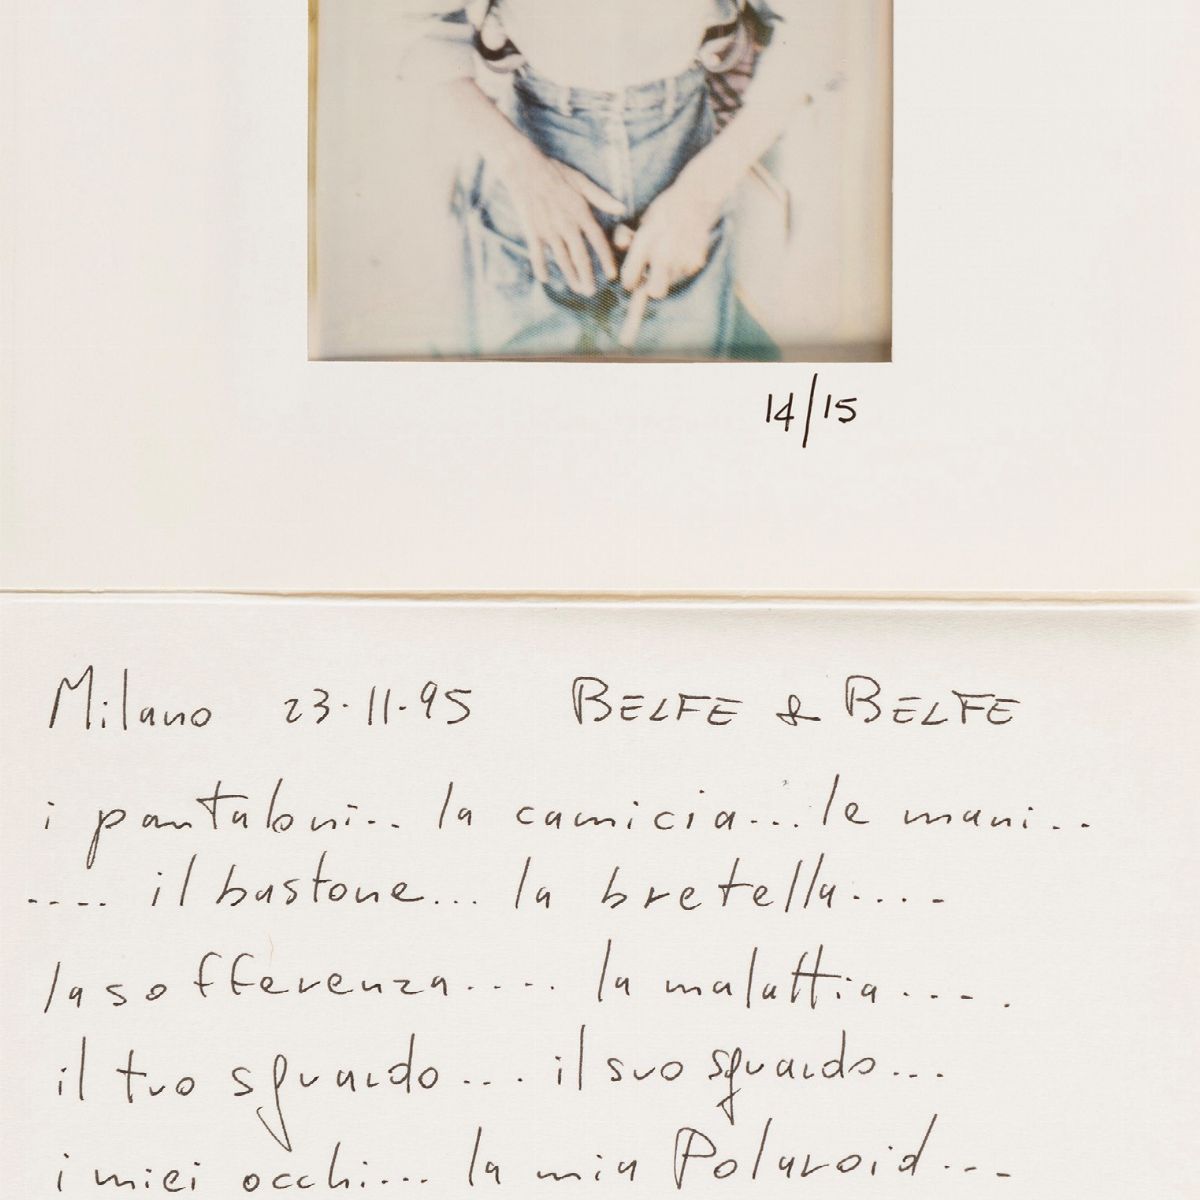 14/15
Milano 23·11·95 BELFE & BELFE
i pantaloni... la camicia... le mani...
.... il bastone... la bretella....
la sofferenza..... la malattia.....
il tuo sguardo.... il suo sguardo...
i miei occhi... la mia Polaroid....